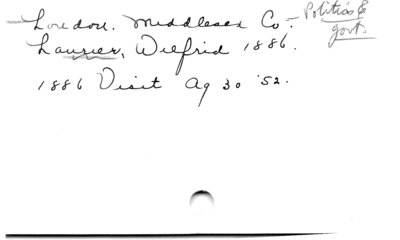 London. Middlesex Co. - Politics & govt.
Laurier, Wilfrid 1886.
1886 Visit Ag 30 '52.